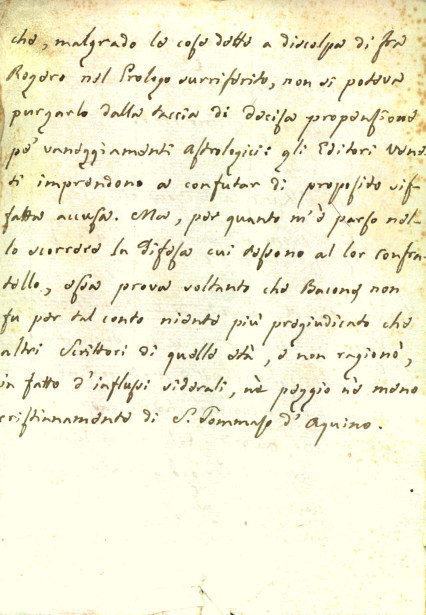 che, malgrado le cose dette a discolpa di Fra
Rogero nel Prologo surriferito, non si poteva
purgarlo dalla taccia di decisa propensione
pe' vaneggiamenti Astrologici: gli Editori Vene-
ti imprendono a confutar di proposito sif-
fatta accusa. Ma, per quanto m'è parso nel-
lo scorrere la Difesa cui tessono al lor confra-
tello, essa prova soltanto che Bacone non
fu per tal conto niente più pregiudicato che
altri Scrittori di quella età, e non ragionò,
in fatto d'influssi siderali, nè peggio nè meno
cristianamente di S. Tommaso d'Aquino.